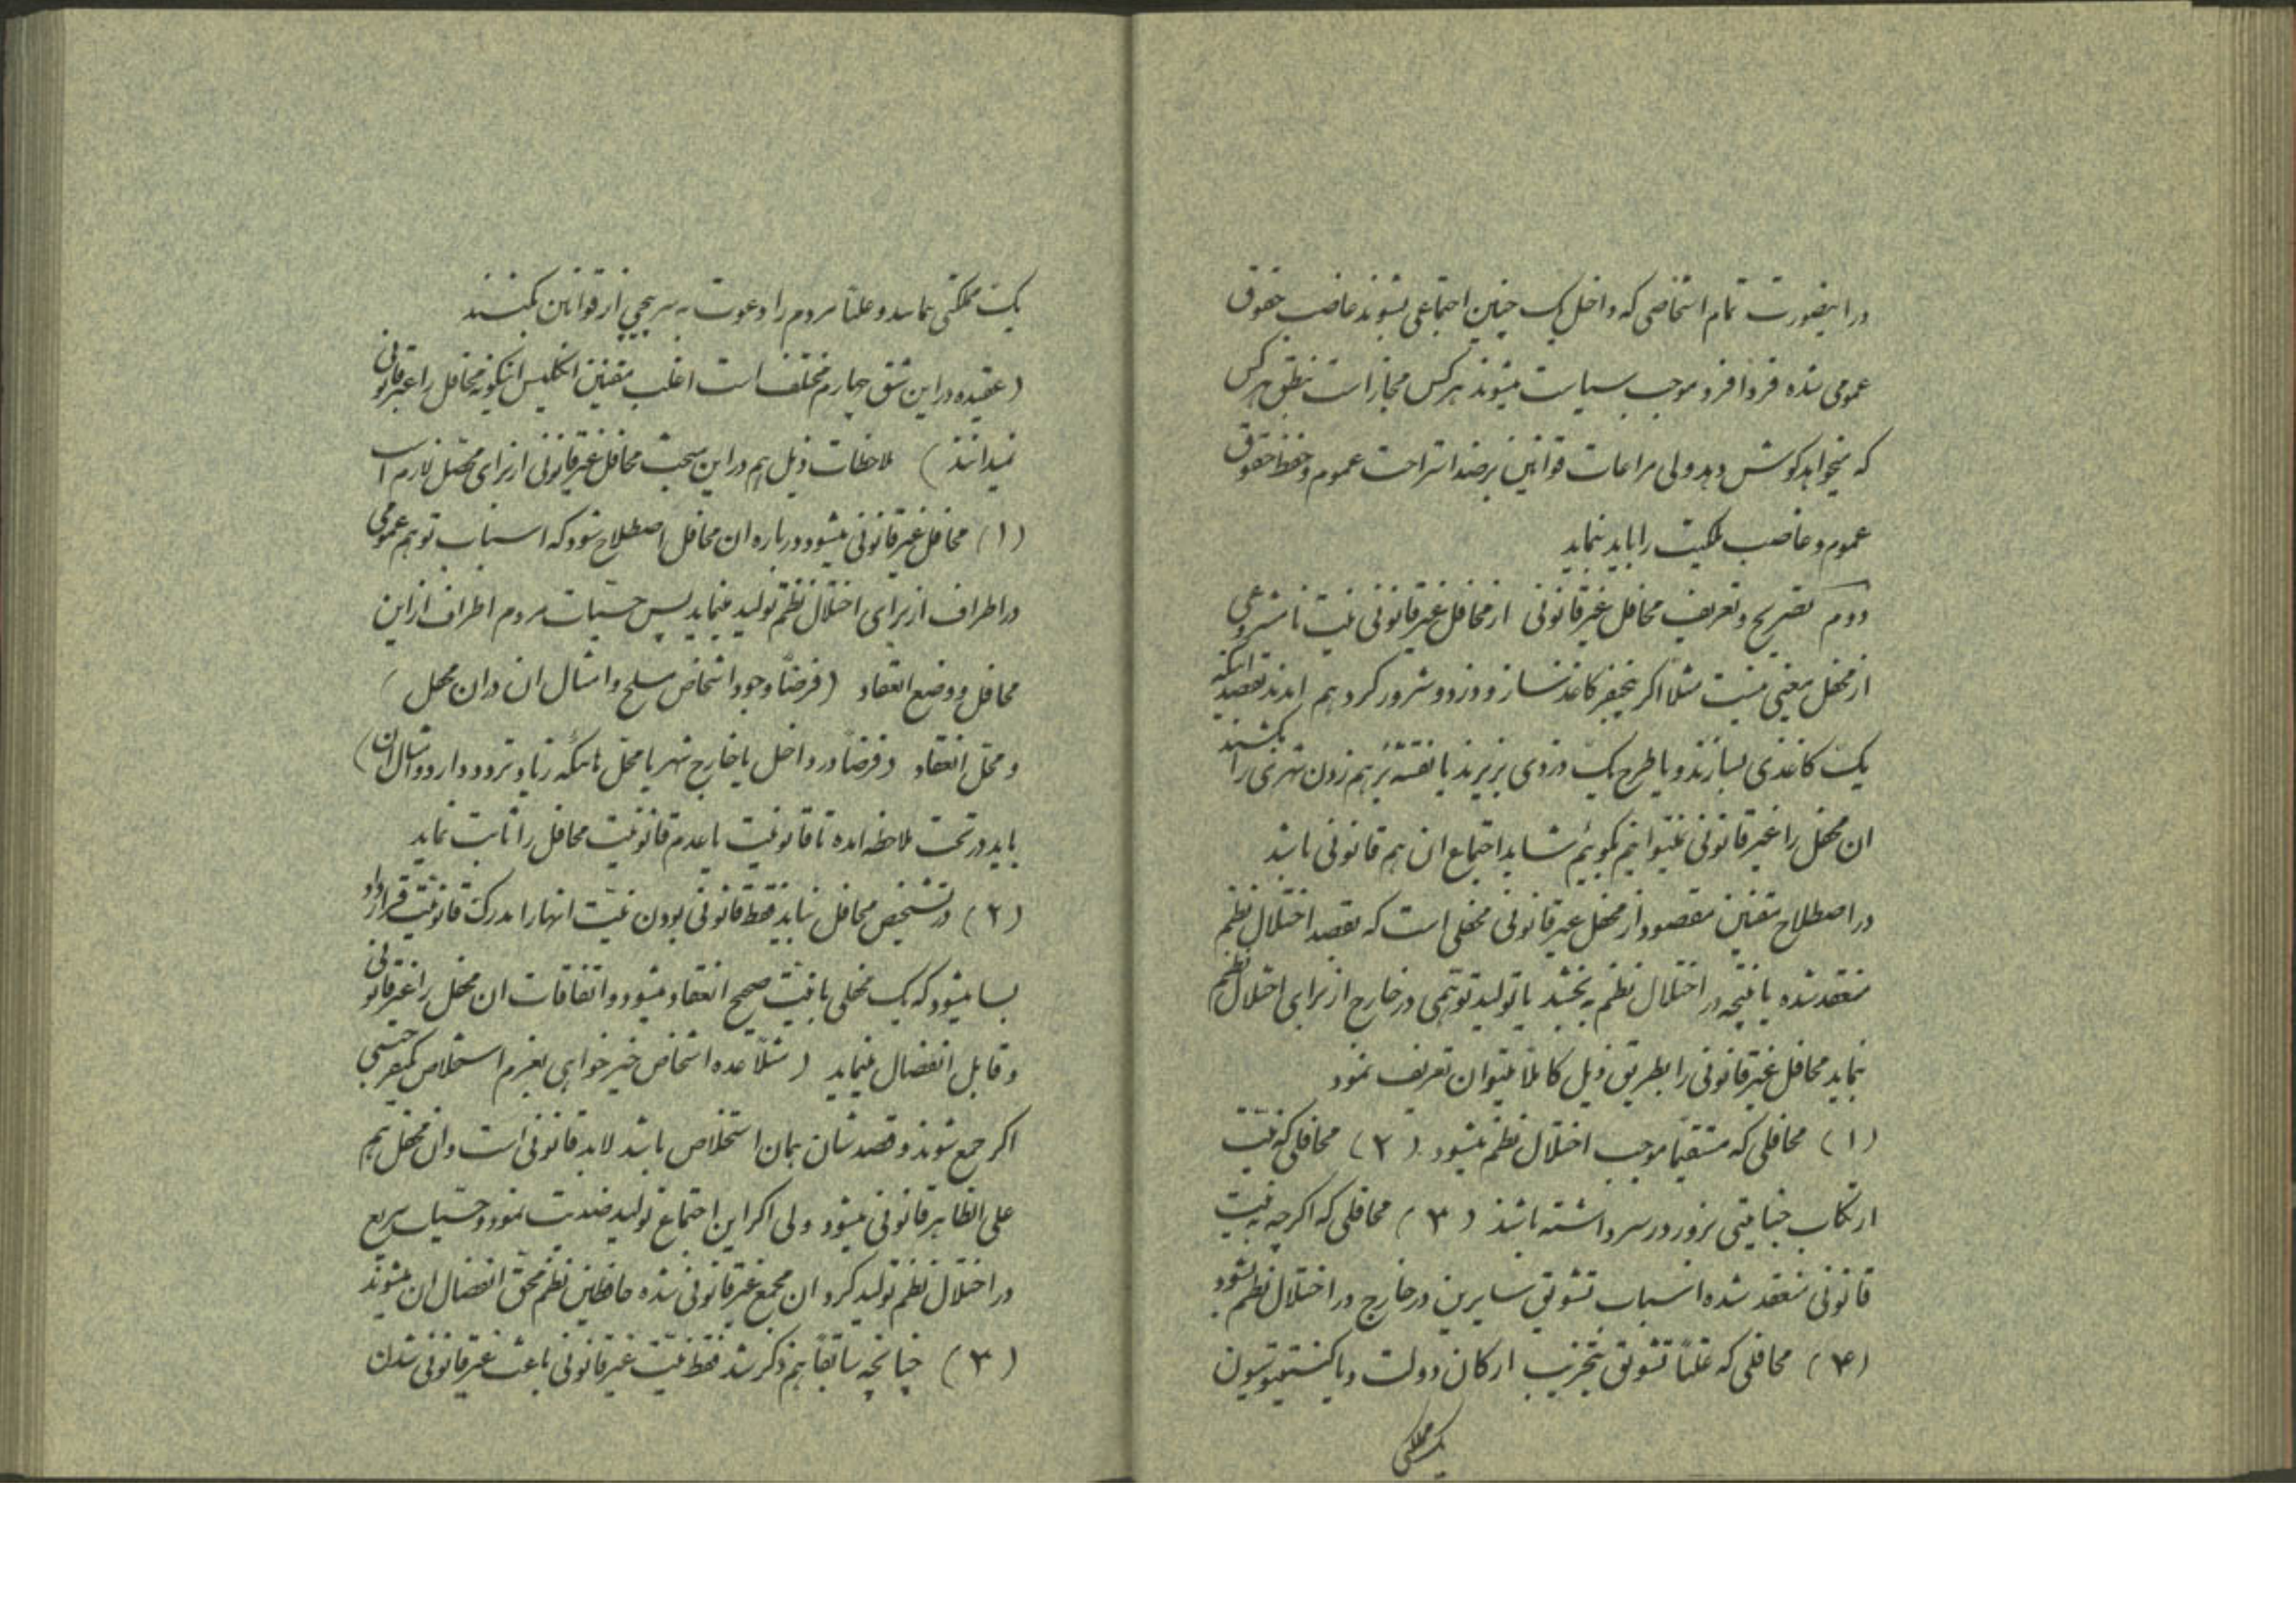 دراینصورت تمام اشخاصی که داخل یک چنین اجتماعی بشوند غاضب حقوق
عمومی شده فرداً فرد موجب سیاست میشوند هرکس مجاز است بنطق هرکس
که میخواهد گوش دهد ولی مراعات قوانین برضد استراحت عموم و حفظ حقوق
عموم و غاصب ملکیت را باید بنماید
دوم تصریح و تعریف محافل غیرقانونی از محافل غیرقانونی نیت نامشروعی
از محفل معینی نیست مثلاً اگر پنجنفر کاغذساز و دزد و شرور گرد هم ایند بقصد اینکه
یک کاغذی بسازند و یا طرح یک دزدی بریزند یا نقشه برهم زدن شهری را بکشند
ان محفل را غیرقانونی نمیتوانیم بگوئیم شاید اجتماع ان هم قانونی باشد
در اصطلاح مقننین مقصود از محفل غیرقانونی محفلی است که بقصد اختلال نظم
منعقد شده یا نتیجه در اختلال نظم به بخشد یا تولید توهمی در خارج از برای اختلال نظم
نماید محافل غیرقانونی را بطریق ذیل کاملاً میتوان تعریف نمود
(۱) محافلی که مستقیماً موجب اختلال نظم میشود (۲) محافلی که نیت
ارتکاب جنایتی بزور در سر داشته باشند (۳) محافلی که اگرچه به نیت
قانونی منعقد شده اسباب تشویق سایرین در خارج در اختلال نظم بشود
(۴) محافلی که علناً تشویق بتخریب ارکان دولت و یا کنستیتوسیون
یک مملکتی
یک مملکتی نمایند و علناً مردم را دعوت به سرپیچی از قوانین بکنند
(عقیده در این شق چهارم مختلف است اغلب مقننین انگلیس اینگونه محافل را غیرقانونی
نمیدانند) ملاحظات ذیل هم در این مبحث محافل غیرقانونی از برای محصل لازم است
(۱) محافل غیرقانونی میشود درباره ان محافل اصطلاح شود که اسباب توهم عمومی
در اطراف از برای اختلال نظم تولید مینماید پس حسیات مردم اطراف از این
محافل و وضع انعقاد (فرضاً وجود اشخاص مسلح و امثال ان در ان محفل)
و محل انعقاد (فرضاً در داخل یا خارج شهر یا محل هائیکه زیاد تردد دارد و امثال ان)
باید در تحت ملاحظه امده تا قانونیت یا عدم قانونیت محافل را ثابت نماید
(۲) در تشخیص محافل نباید فقط قانونی بودن نیت انها را مدرک قانونیت قرار داد
بسا میشود که یک محفلی با نیت صحیح انعقاد میشود و اتفاقات ان محفل را غیرقانونی
و قابل انفصال مینماید (مثلاً عده اشخاص خیرخواهی بعزم استخلاص یکنفر حبسی
اگر جمع شوند و قصدشان همان استخلاص باشد لابد قانونی است و ان محفل هم
علی الظاهر قانونی میشود ولی اگر این اجتماع تولید ضدیت نمود و حسیات سریع
در اختلال نظم تولید کرد ان مجمع غیرقانونی شده حافظین نظم محق انفصال ان میشوند
(۳) چنانچه سابقاً هم ذکر شد فقط نیت غیرقانونی باعث غیرقانونی شدن